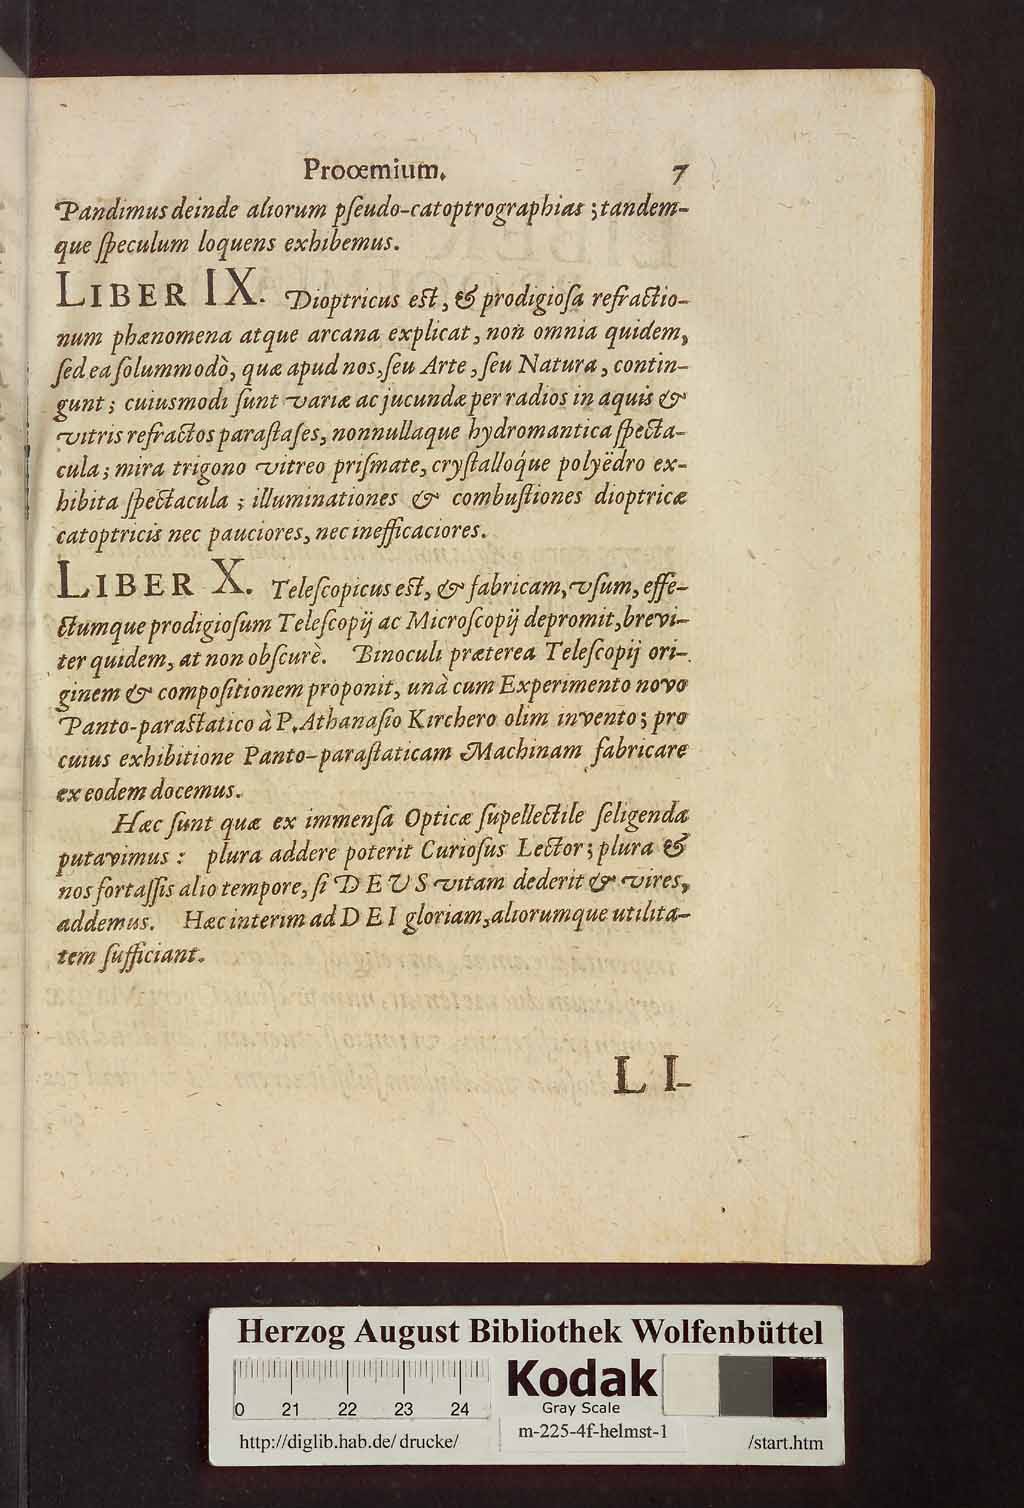 Proœmium. 7
Pandimus deinde aliorum pſeudo-catoptrographias ; tandem-
que ſpeculum loquens exhibemus.
LIBER IX. Dioptricus eſt, & prodigioſa refractio-
num phænomena atque arcana explicat, non omnia quidem,
ſed ea ſolummodò, quæ apud nos, ſeu Arte, ſeu Natura, contin-
gunt ; cuiusmodi ſunt variæ ac jucundæ per radios in aquis &
vitris refractos paraſtaſes, nonnullaque hydromantica ſpecta-
cula ; mira trigono vitreo priſmate, cryſtallóque polyëdro ex-
hibita ſpectacula ; illuminationes & combuſtiones dioptricæ
catoptricis nec pauciores, nec inefficaciores.
LIBER X. Teleſcopicus eſt, & fabricam, vſum, effe-
ctumque prodigioſum Teleſcopij ac Microſcopij depromit, brevi-
ter quidem, at non obſcurè. Binoculi præterea Teleſcopij ori-
ginem & compoſitionem proponit, unà cum Experimento novo
Panto-paraſtatico à P. Athanaſio Kirchero olim invento ; pro
cuius exhibitione Panto-paraſtaticam Machinam fabricare
ex eodem docemus.
Hæc ſunt quæ ex immenſa Opticæ ſupellectile ſeligenda
putavimus : plura addere poterit Curioſus Lector ; plura &
nos fortaſſis alio tempore, ſi DEUS vitam dederit & vires,
addemus. Hæc interim ad DEI gloriam, aliorumque utilita-
tem ſufficiant.
LI-
Herzog August Bibliothek Wolfenbüttel
0 21 22 23 24
Kodak
Gray Scale
http://diglib.hab.de/drucke/ m-225-4f-helmst-1 /start.htm